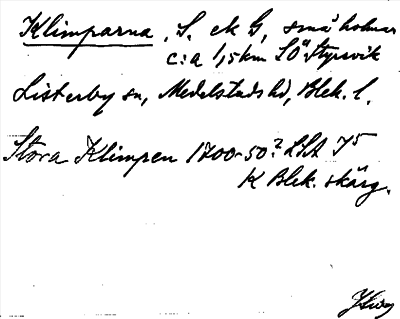 Klimparna, S. ek G, små holmar
c:a 1,5 km SÖ Styrsvik
Listerby sn, Medelstads hd, Blek. l.
Stora Klimpen 1700-50? LSA I5
K Blek. skärg.